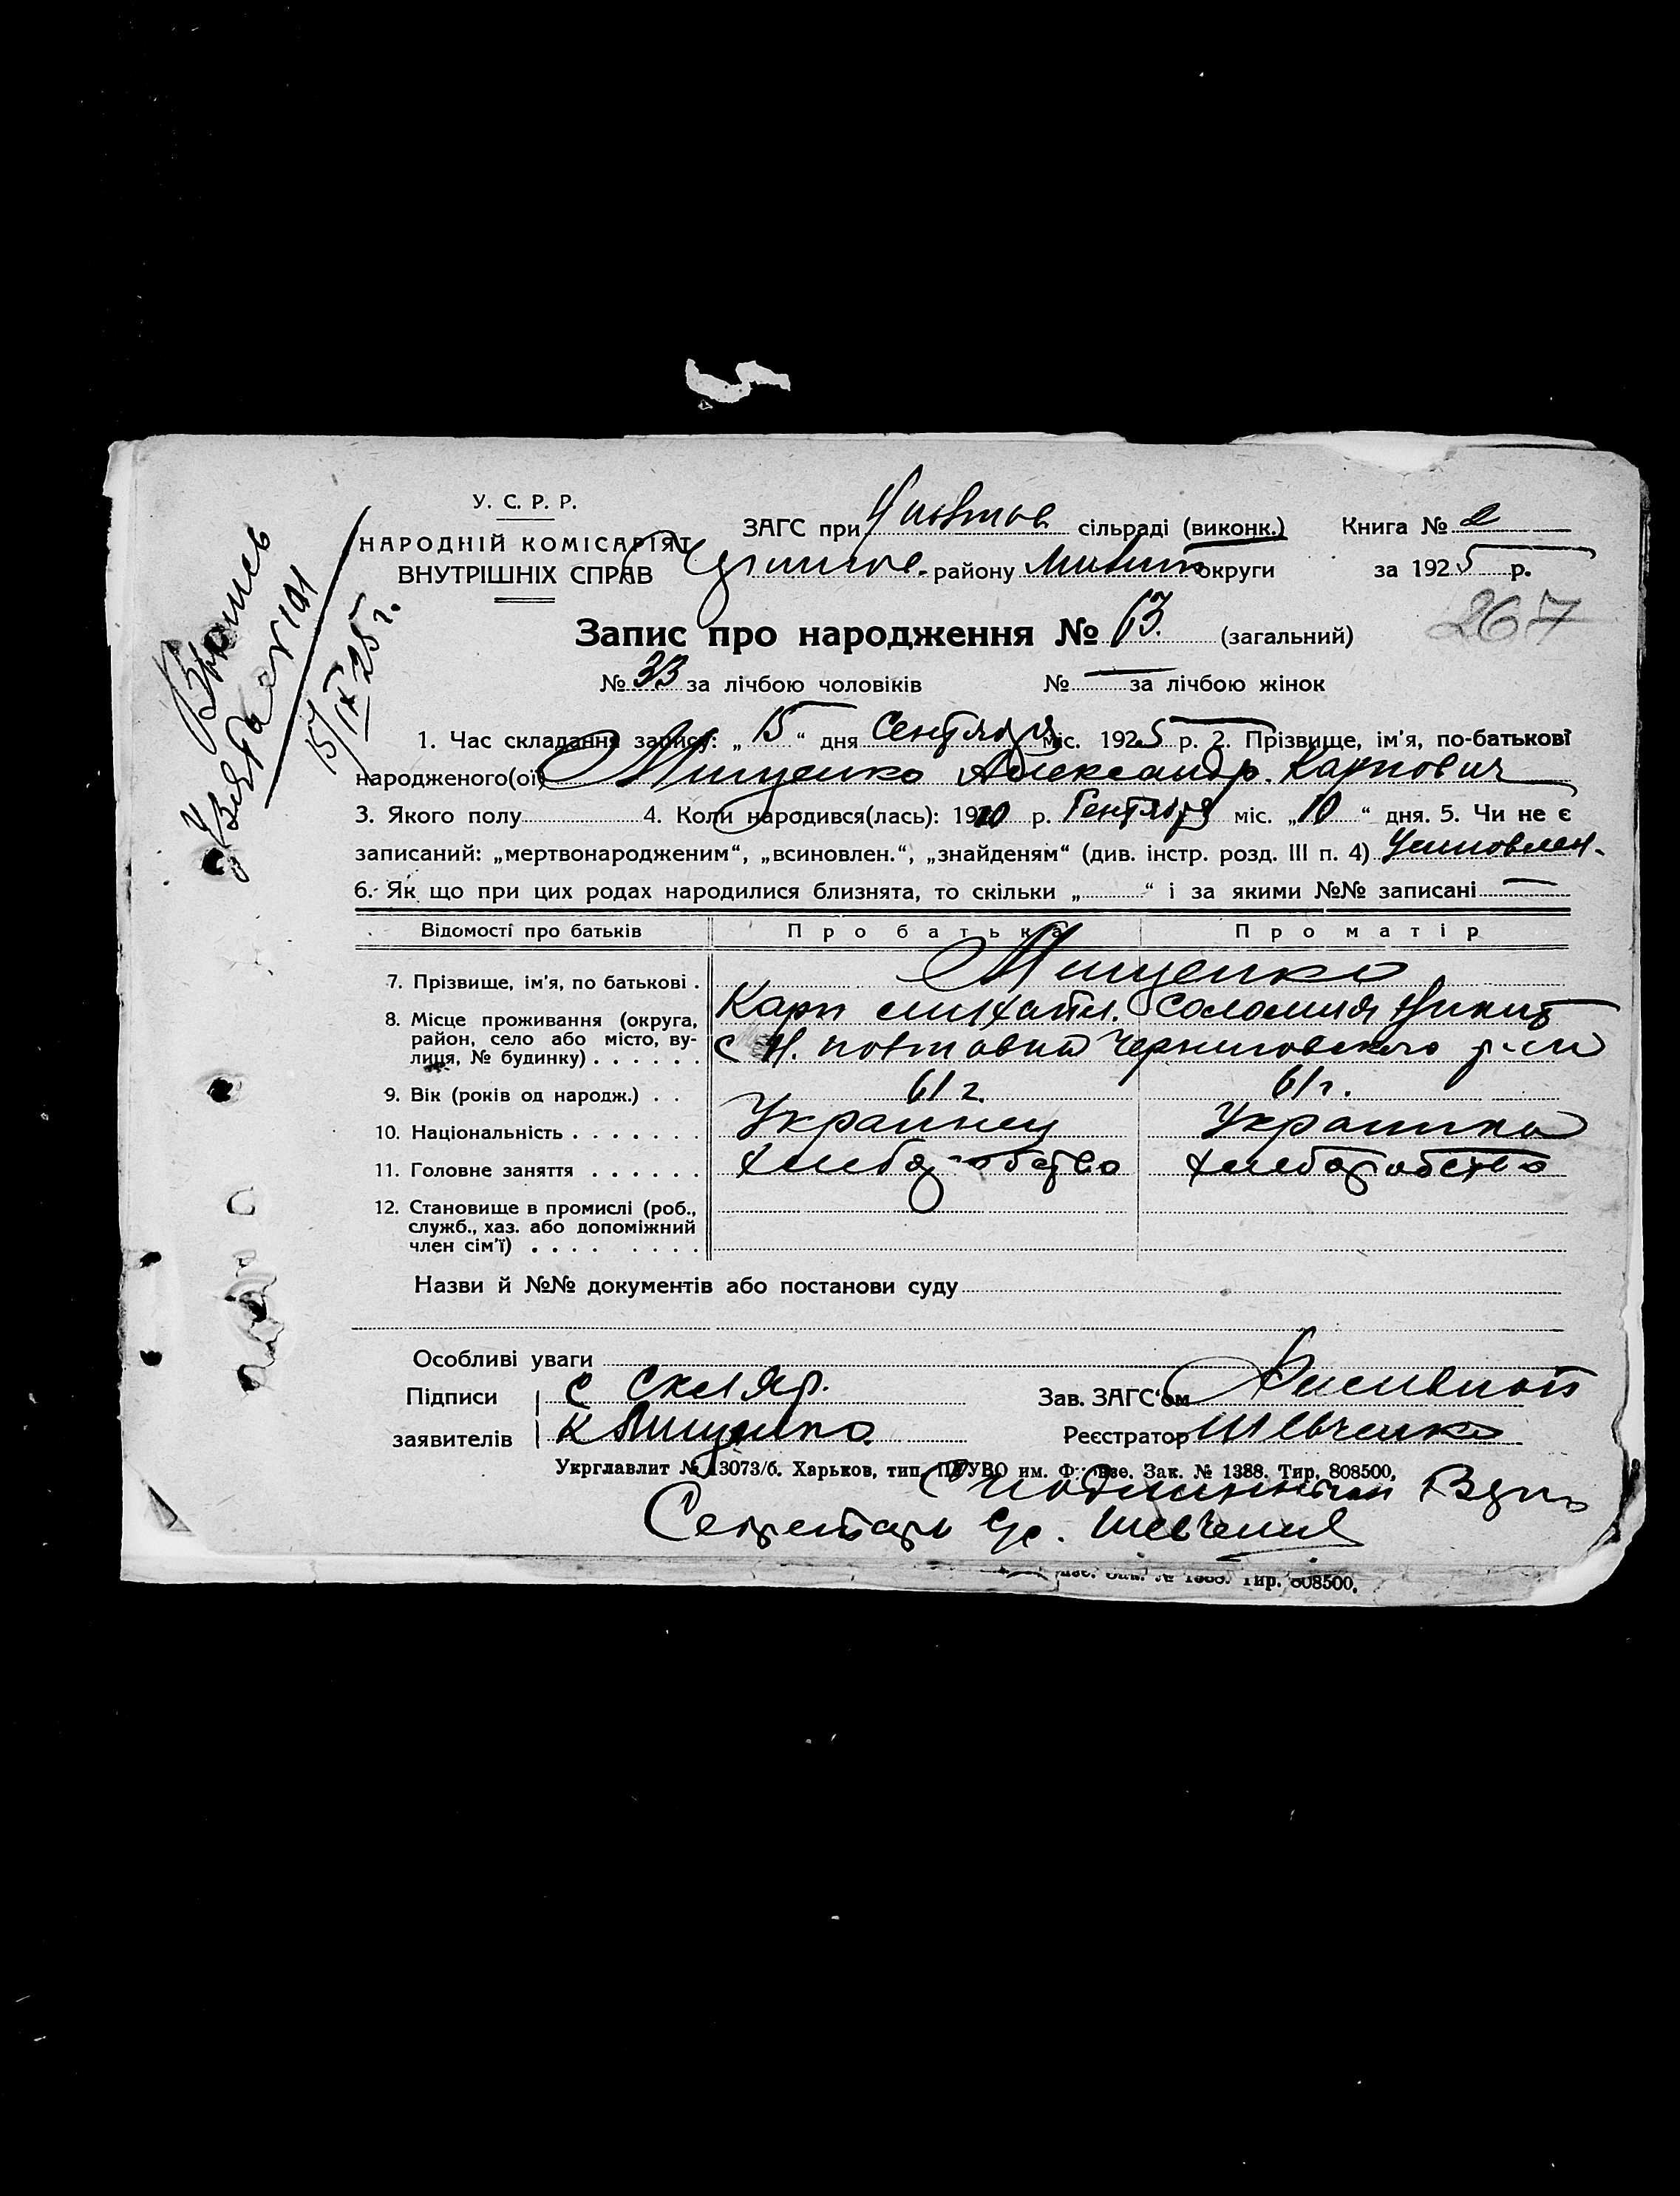 У. С. Р. Р.
НАРОДНІЙ КОМІСАРІЯТ
ВНУТРІШНІХ СПРАВ
ЗАГС при сільраді (виконк.) Книга № 2
району округи за 1925 р.
267
Запис про народження № 63. (загальний)
№ 33 за лічбою чоловіків № за лічбою жінок
Выпись
Взята
15/IX 25 г.
1. Час складання запису: „15“ дня Сентября міс. 1925 р. 2. Прізвище, ім'я, по-батькові
народженого(ої) Мищенко Александр Карпович
3. Якого полу 4. Коли народився(лась): 1920 р. Сентября міс. „10“ дня. 5. Чи не є
записаний: „мертвонародженим“, „всиновлен.“, „знайденям“ (див. інстр. розд. III п. 4) Усиновлен.
6. Як що при цих родах народилися близнята, то скільки „ “ і за якими №№ записані —
Відомості про батьків Про батька Про матір
7. Прізвище, ім'я, по батькові . Мищенко
Карп Михайл. Соломия Никит
8. Місце проживання (округа, район, село або місто, вулиця, № будинку) . . . . . . с Н. Полтавка Черниговского р-на
9. Вік (років од народж.) . . 61 г. 61 г.
10. Національність . . . . . . . Украинец Украинка
11. Головне заняття . . . . . . хлеборобство хлеборобство
12. Становище в промислі (роб.,
служб., хаз. або допоміжний
член сім'ї) . . . . . . . .
Назви й №№ документів або постанови суду
Особливі уваги
Підписи С Скляр. Зав. ЗАГС'ом
заявителів К Мищенко. Реєстратор Шевченко
Укрглавлит № 13073/б. Харьков, тип. им. Зак. № 1388. Тир. 808500.
С подлинным
Секретарь Шевченко
Тир. 808500.